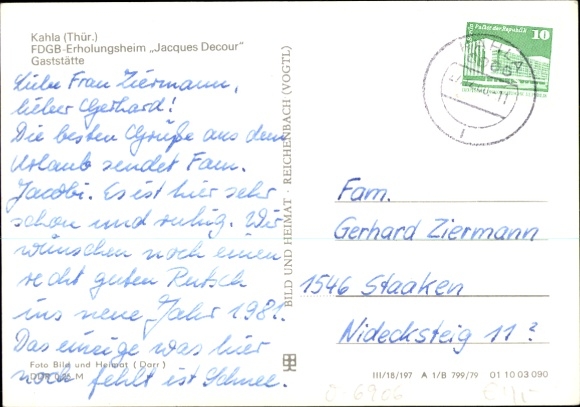 Kahla (Thür.)
FDGB-Erholungsheim „Jacques Decour"
Gaststätte
Liebe Frau Ziermann,
lieber Gerhard!
Die besten Grüße aus dem
Urlaub sendet Fam.
Jacobi. Es ist hier sehr
schön und ruhig. Wir
wünschen noch einen
recht guten Rutsch
ins neue Jahr 1981.
Das einzige was hier
noch fehlt ist Schnee.
Foto Bild und Heimat (Darr)
M
BILD UND HEIMAT · REICHENBACH (VOGTL)
Palast der Republik
10
KAHLA
Fam.
Gerhard Ziermann
1546 Staaken
Nidecksteig 11?
III/18/197 A 1/B 799/79 01 10 03 090